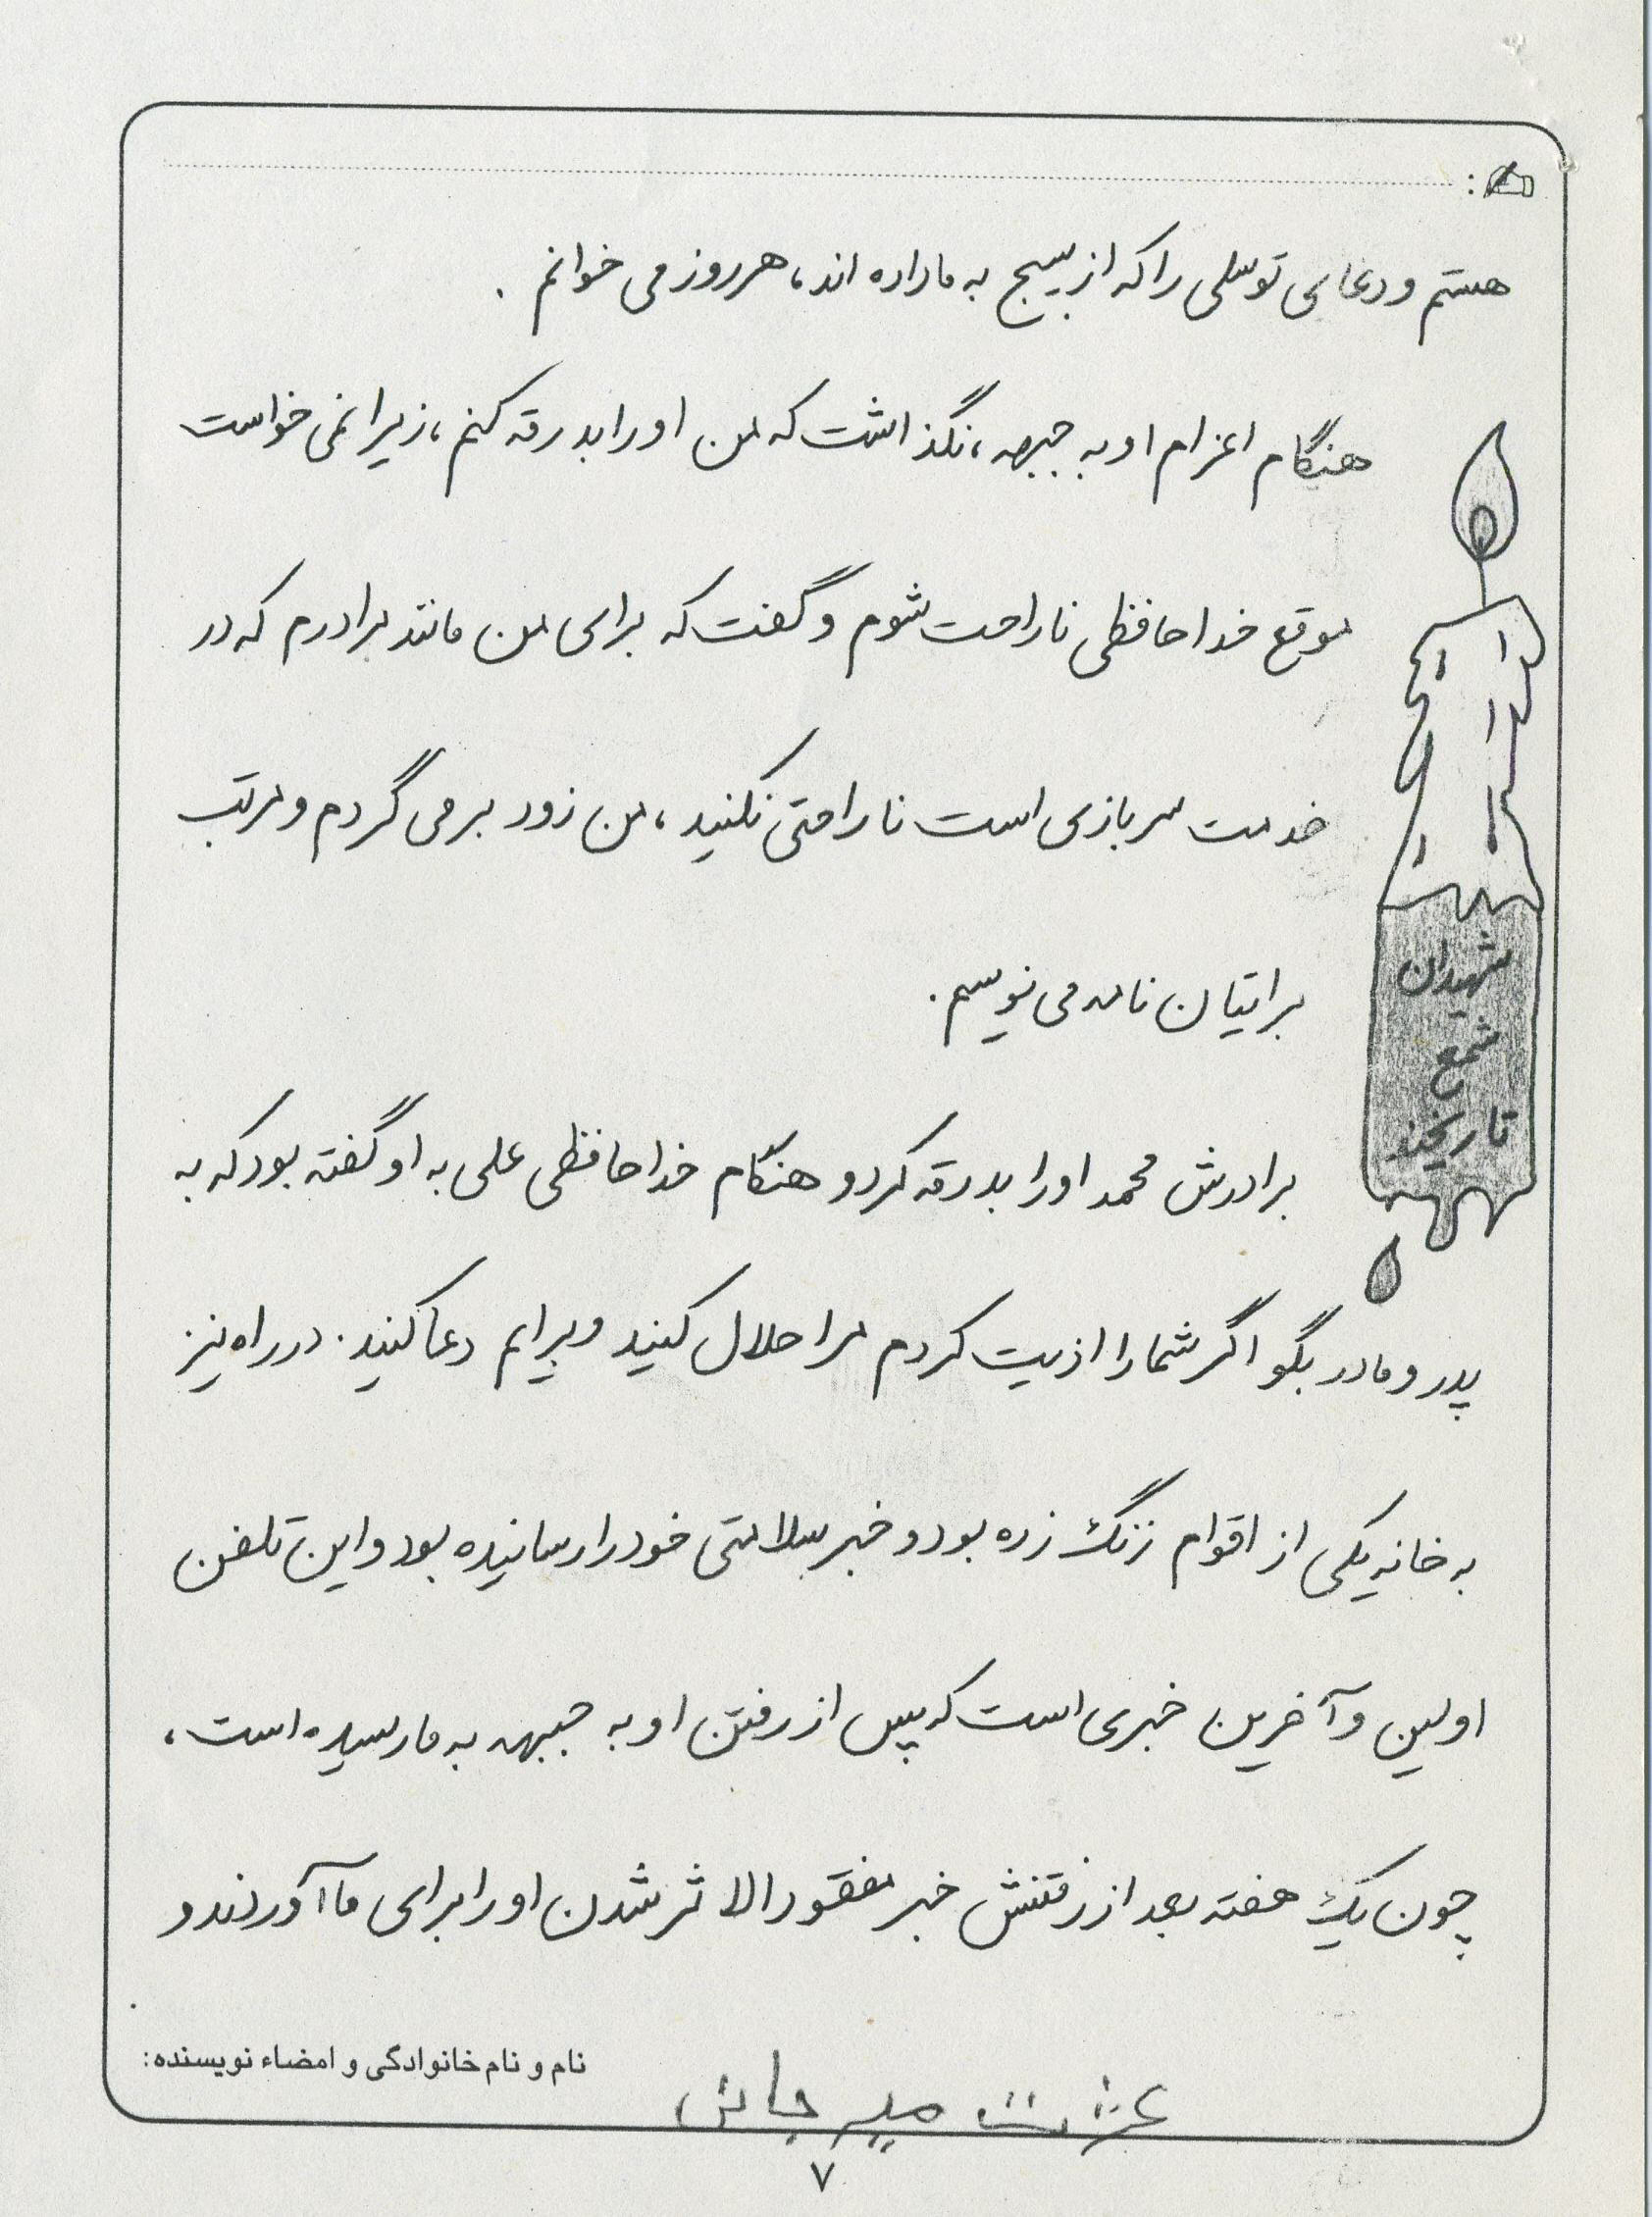 هستم و دعای توسلی را که از بسیج به ما داده اند، هر روز می خوانم .
هنگام اعزام او به جبهه، نگذاشت که من او را بدرقه کنم، زیرا نمی خواست
موقع خداحافظی ناراحت شوم و گفت که برای من مانند برادرم که در
خدمت سربازی است ناراحتی نکنید، من زود بر می گردم و مرتب
برایتان نامه می نویسم.
برادرش محمد او را بدرقه کرد و هنگام خداحافظی علی به او گفته بود که به
پدر و مادر بگو اگر شما را اذیت کردم مرا حلال کنید و برایم دعا کنید. در راه نیز
به خانه یکی از اقوام زنگ زده بود و خبر سلامتی خود را رسانیده بود و این تلفن
اولین و آخرین خبری است که پس از رفتن او به جبهه به ما رسیده است،
چون یک هفته بعد از رفتنش خبر مفقودالاثر شدن او را برای ما آوردند و
شهیدان
شمع
تاریخند
نام و نام خانوادگی و امضاء نویسنده:
عشرت میرجانی
۷